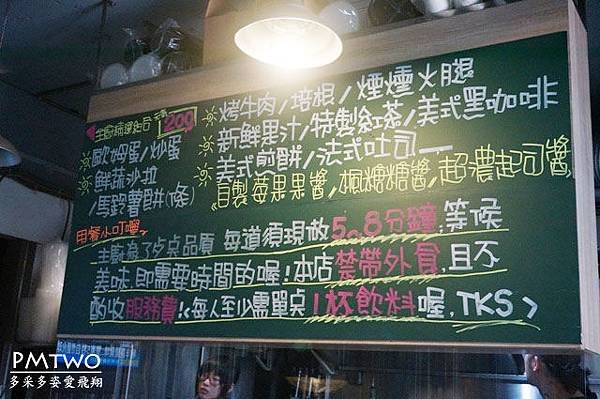 主廚精選組合 200
烤牛肉/培根/煙燻火腿
歐姆蛋/炒蛋
新鮮果汁/特製紅茶/美式黑咖啡
鮮蔬沙拉
美式煎餅/法式吐司
/馬鈴薯餅(條)
自製莓果果醬,楓糖糖醬,超濃起司醬
用餐小叮嚀
主廚為了餐桌品質 每道須現做5~8分鐘,等候
美味,即需要時間的喔!本店禁帶外食,且不
酌收服務費!每人至少需單桌1杯飲料喔,TKS>
PMTWO
多采多姿愛飛翔